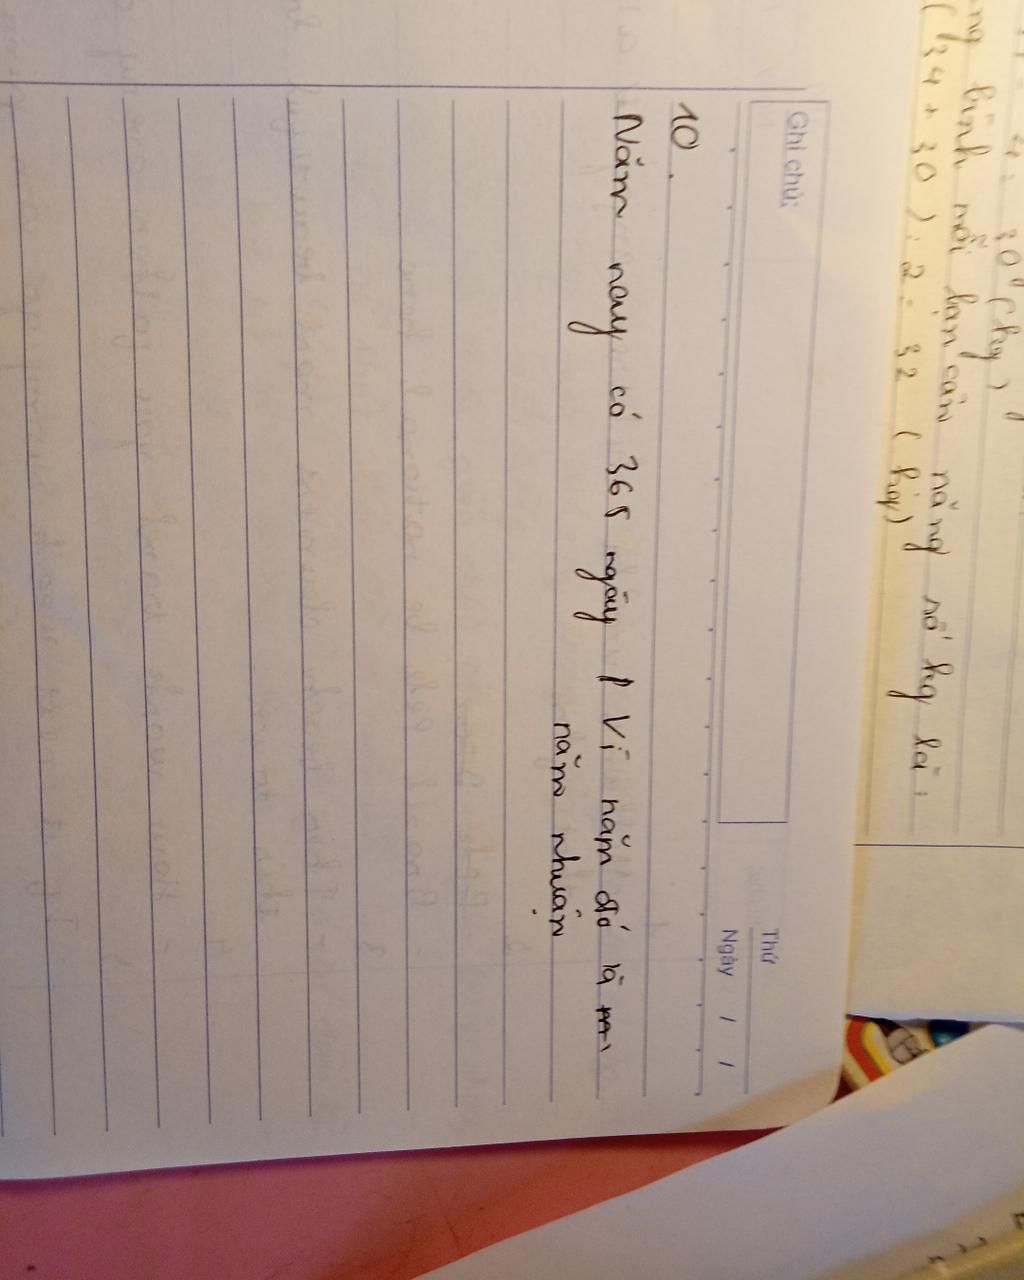 4 = 30 (kg)
bình mỗi bạn cân nặng số kg là:
(34 + 30) : 2 = 32 (kg)
Ghi chú:
Thứ
Ngày / /
10.
Năm nay có 365 ngày / Vì năm đó là
năm nhuận